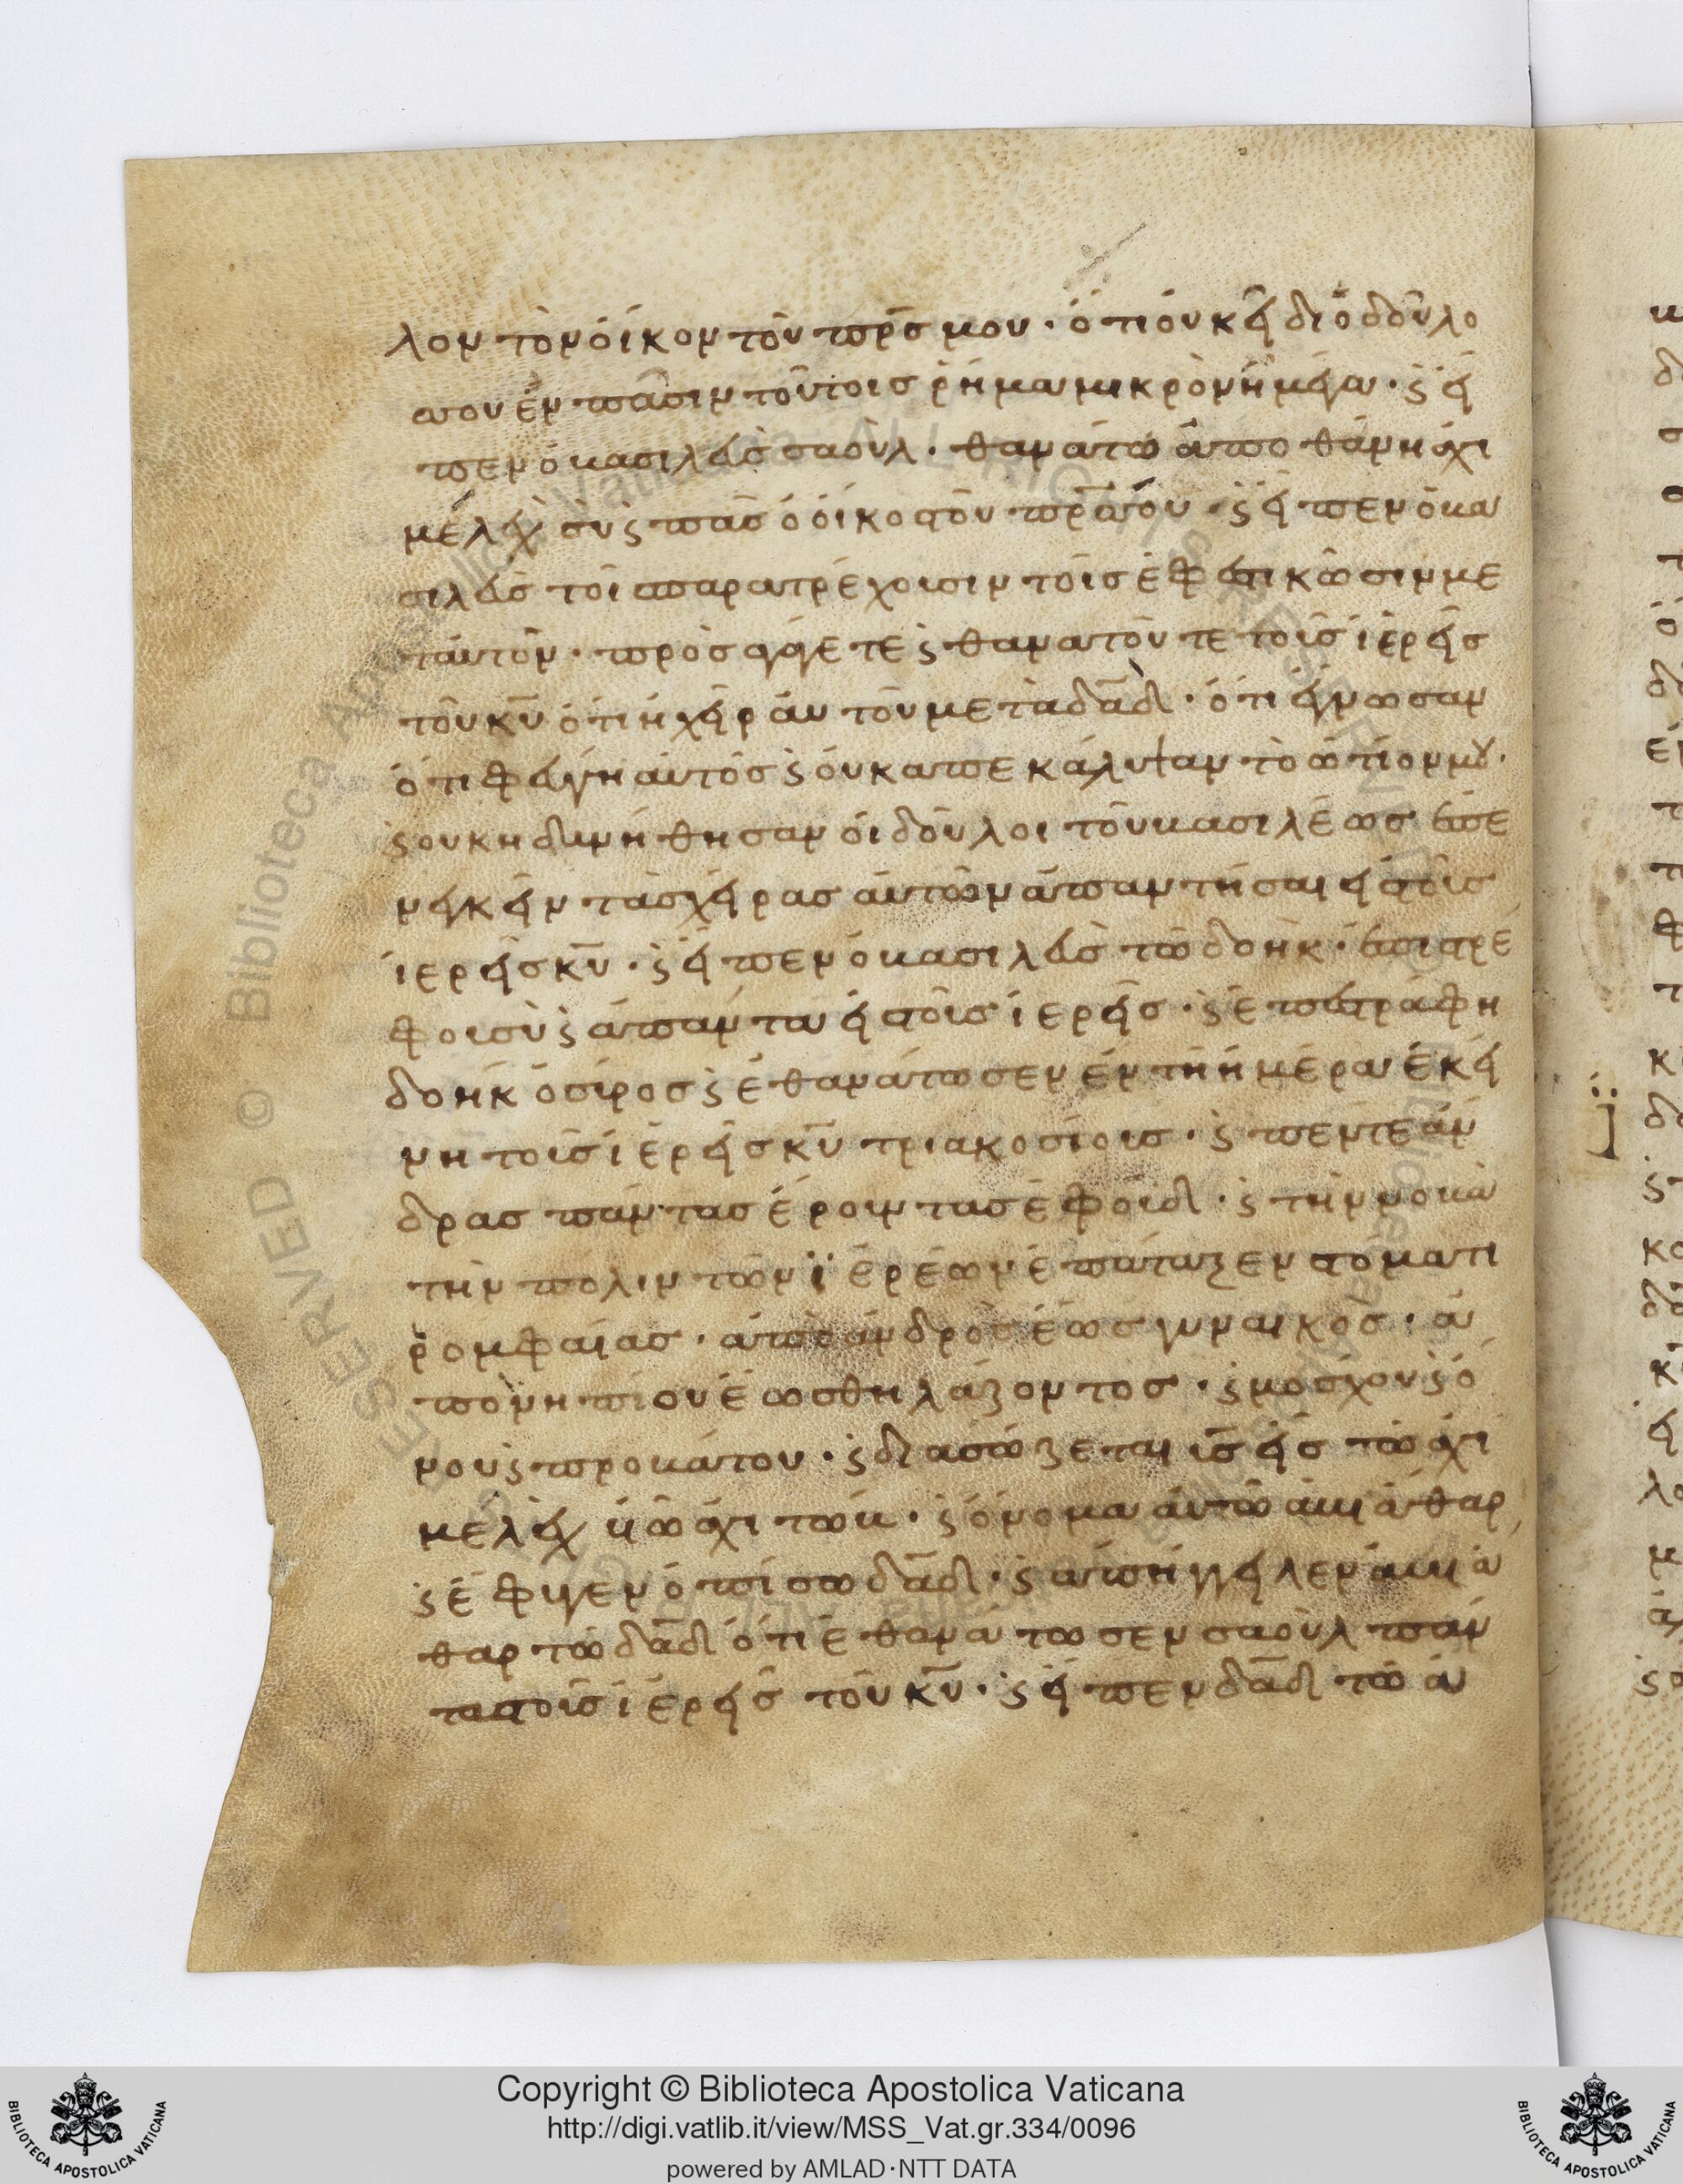 λον τὸν οἶκον τοῦ πρ̅σ μου · ὅτι οὐκ ἤδει ὁ δοῦλο
σου ἐν πᾶσιν τούτοις ῥῆμα μικρὸν ἢ μέγα · ϗ εἶ
πεν ὁ βασιλεὺς σαοὺλ · θανάτω ἀποθάνη ἀχι
μέλεχ σὺ ϗ πᾶς ὁ οἶκος τοῦ πρ̅σ σου · ϗ εἶπεν ὁ βα
σιλεὺς τοῖς παρατρέχουσιν τοῖς ἐφεστικῶσιν με
τ αὐτοῦ · προσαγάγετε ϗ θανατοῦτε τοὺς ἱερεῖς
τοῦ κ̅υ ὅτι ἡ χεὶρ αὐτοῦ μετὰ δα̅δ · ὅτι ἔγνωσαν
ὅτι φεύγει αὐτὸς ϗ οὐκ ἀπεκάλυψαν τὸ ὠτίον μου ·
ϗ ουκ ηβουνήθησαν οἱ δοῦλοι τοῦ βασιλέως ἐπε
νεγκεῖν τὰς χεῖρας αὐτῶν ἀπαντῆσαι εἰς τοὺς
ἱερεῖς κ̅υ · ϗ εἶπεν ὁ βασιλεὺς τῶ δοὴκ · ἐπιστρέ
φου σὺ ϗ ἀπάντα εἰς τοὺς ἱερεῖς · ϗ ἐπεστράφη
δοὴκ ὁ σύρος ϗ ἐθανάτωσεν ἐν τῆ ἡμέρα ἐκεί
νη τοὺς ἱερεῖς κ̅υ τριακοσίους · ϗ πέντε ἄν
δρας πάντας αἴροντας ἐφούδ · ϗ τὴν νομβὰ
τὴν πόλιν τῶν ϊερέων ἐπάταξεν στόματι
ῥομφαίας · ἀπὸ ἀνδρὸς ἕως γυναικὸς · ἀ
πο νηπίου ἕως θηλάζοντος · ϗ μόσχου ϗ ὄ
νου ϗ προβάτου · ϗ διασώζεται υἱ̅ς εἷς τῶ ἀχι
μέλεχ υἱῶ ἀχιτὼβ · ϗ ὄνομα αὐτῶ ἀβιάθαρ
ϗ ἔφυγεν ὀπίσω δα̅δ · ϗ ἀπήγγειλεν ἀβιά
θαρ τῶ δα̅δ ὅτι ἐθανάτωσεν σαοὺλ πάν
τας τοὺς ἱερεῖς τοῦ κ̅υ · ϗ εἶπεν δα̅δ τῶ ἀ
Copyright © Biblioteca Apostolica Vaticana
http://digi.vatlib.it/view/MSS_Vat.gr.334/0096
powered by AMLAD·NTT DATA